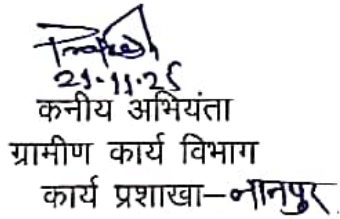 Prakash
21.11.25
कनीय अभियंता
ग्रामीण कार्य विभाग
कार्य प्रशाखा–नानपुर